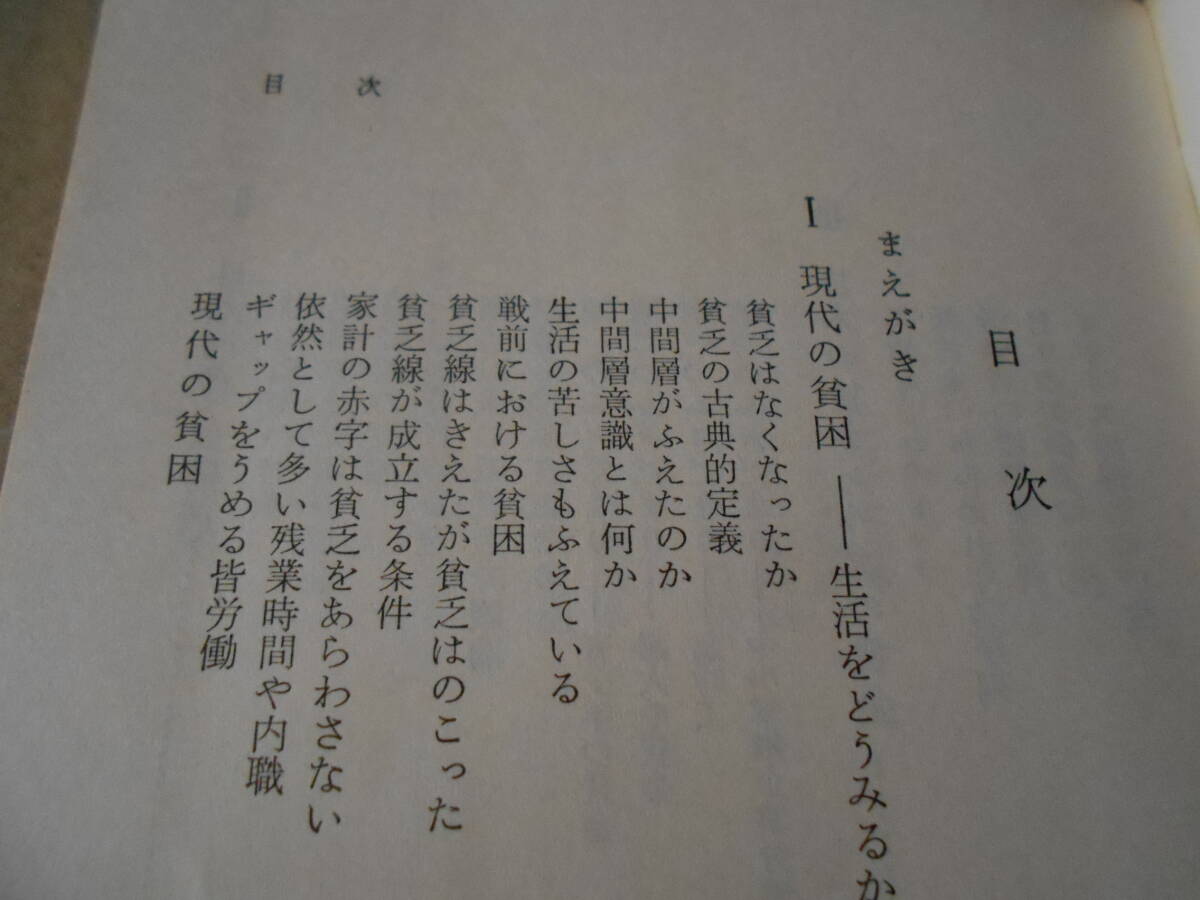 目次
まえがき
I 現代の貧困――生活をどうみるか
貧乏はなくなったか
貧乏の古典的定義
中間層がふえたのか
中間層意識とは何か
生活の苦しさもふえている
戦前における貧困
貧乏線はきえたが貧乏はのこった
貧乏線が成立する条件
家計の赤字は貧乏をあらわさない
依然として多い残業時間や内職
ギャップをうめる皆労働
現代の貧困
目次